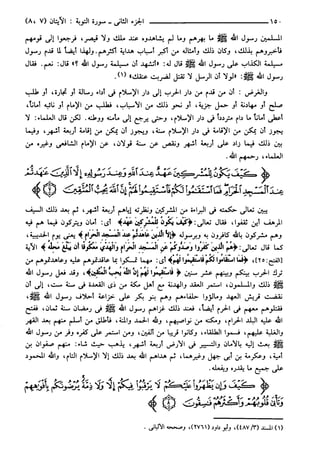 ١٥٠ الجزء الثاني - سورة التوبة : الآيتان (٧، ٨)
المسلمين رسول الله ﷺ ما بهرهم وما لم يشاهدوه عند ملك ولا قيصر، فرجعوا إلى قومهم
فأخبروهم بذلك، وكان ذلك وأمثاله من أكبر أسباب هداية أكثرهم. ولهذا أيضاً لما قدم رسول
مسيلمة الكذاب على رسول الله ﷺ قال له: «أتشهد أن مسيلمة رسول الله ؟» قال: نعم. فقال
رسول الله ﷺ: «لولا أن الرسل لا تقتل لضربت عنقك» (١).
والغرض : أن من قدم من دار الحرب إلى دار الإسلام في أداء رسالة أو تجارة، أو طلب
صلح أو مهادنة أو حمل جزية، أو نحو ذلك من الأسباب، فطلب من الإمام أو نائبه أماناً،
أعطي أماناً ما دام متردداً في دار الإسلام، وحتى يرجع إلى مأمنه ووطنه. لكن قال العلماء: لا
يجوز أن يمكن من الإقامة في دار الإسلام سنة، ويجوز أن يمكن من إقامة أربعة أشهر، وفيما
بين ذلك فيما زاد على أربعة أشهر ونقص عن سنة قولان، عن الإمام الشافعي وغيره من
العلماء، رحمهم الله.
كَيْفَ يَكُونُ لِلْمُشْرِكِينَ عَهْدٌ عِندَ اللَّهِ وَعِندَ رَسُولِهِ إِلَّا الَّذِينَ عَاهَدتُّمْ
عِندَ الْمَسْجِدِ الْحَرَامِ فَمَا اسْتَقَامُوا لَكُمْ فَاسْتَقِيمُوا لَهُمْ إِنَّ اللَّهَ يُحِبُّ الْمُتَّقِينَ
يبين تعالى حكمته في البراءة من المشركين ونظرته إياهم أربعة أشهر، ثم بعد ذلك السيف
المرهف أين ثقفوا، فقال تعالى: ﴿كَيْفَ يَكُونُ لِلْمُشْرِكِينَ عَهْدٌ﴾ أي: أمان ويتركون فيما هم فيه
وهم مشركون بالله كافرون به وبرسوله ﴿إِلَّا الَّذِينَ عَاهَدتُّمْ عِندَ الْمَسْجِدِ الْحَرَامِ﴾ يعني يوم الحديبية،
كما قال تعالى: ﴿هُمُ الَّذِينَ كَفَرُوا وَصَدُّوكُمْ عَنِ الْمَسْجِدِ الْحَرَامِ وَالْهَدْيَ مَعْكُوفًا أَن يَبْلُغَ مَحِلَّهُ﴾ الآية
[الفتح: ٢٥]، ﴿فَمَا اسْتَقَامُوا لَكُمْ فَاسْتَقِيمُوا لَهُمْ﴾ أي: مهما تمسكوا بما عاقدتموهم عليه وعاهدتموهم من
ترك الحرب بينكم وبينهم عشر سنين ﴿فَاسْتَقِيمُوا لَهُمْ إِنَّ اللَّهَ يُحِبُّ الْمُتَّقِينَ﴾، وقد فعل رسول الله
ﷺ ذلك والمسلمون، استمر العقد والهدنة مع أهل مكة من ذي القعدة في سنة ست، إلى أن
نقضت قريش العهد ومالؤوا حلفاءهم وهم بنو بكر على خزاعة أحلاف رسول الله ﷺ،
فقتلوهم معهم في الحرم أيضاً، فعند ذلك غزاهم رسول الله ﷺ في رمضان سنة ثمان، ففتح
الله عليه البلد الحرام، ومكنه من نواصيهم، ولله الحمد والمنة، فأطلق من أسلم منهم بعد القهر
والغلبة عليهم، فسموا الطلقاء، وكانوا قريباً من ألفين، ومن استمر على كفره وفر من رسول الله
ﷺ بعث إليه بالأمان والتسيير في الأرض أربعة أشهر، يذهب حيث شاء: منهم صفوان بن
أمية، وعكرمة بن أبي جهل وغيرهما، ثم هداهم الله بعد ذلك إلى الإسلام التام، والله المحمود
على جميع ما يقدره ويفعله.
كَيْفَ وَإِن يَظْهَرُوا عَلَيْكُمْ لَا يَرْقُبُوا فِيكُمْ إِلًّا وَلَا ذِمَّةً يُرْضُونَكُم بِأَفْوَاهِهِمْ
وَتَأْبَى قُلُوبُهُمْ وَأَكْثَرُهُمْ فَاسِقُونَ
(١) المسند (٤٨٧/٣)، وأبو داود (٢٧٦١)، وصححه الألباني .